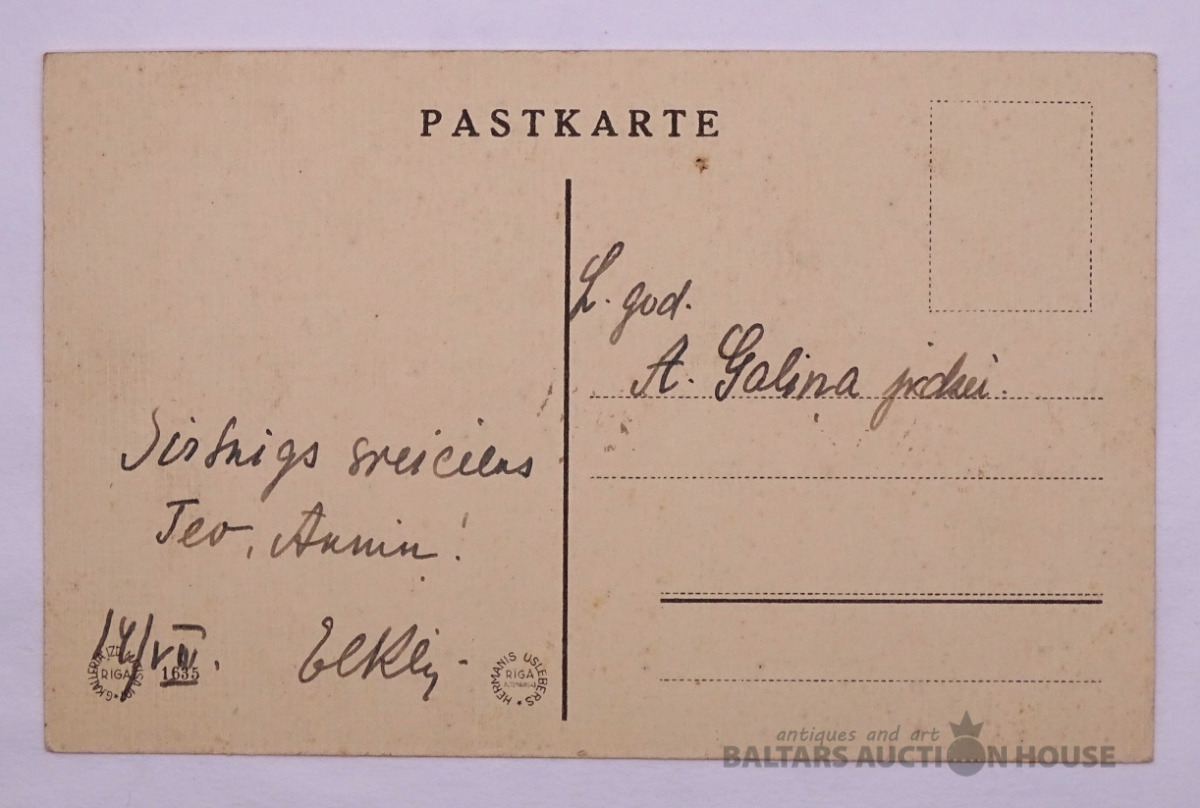 PASTKARTE
L. god.
A. Galiņa jkdzei.
Sirsnīgs sveiciens
Tev, Anniņ!
14/VII.
RIGA
1635
HERMANIS USLEBERS
RIGA
antiques and art
BALTARS AUCTION HOUSE